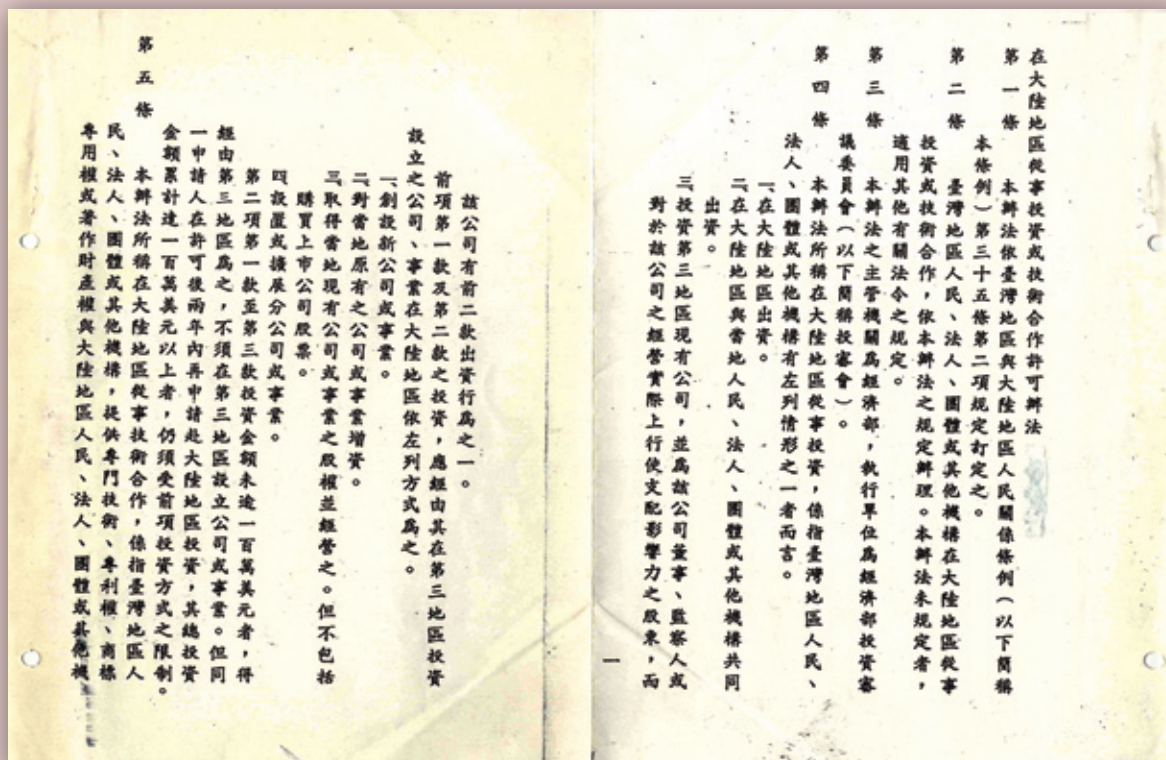 在大陸地區從事投資或技術合作許可辦法
第一條　本辦法依臺灣地區與大陸地區人民關係條例（以下簡稱
本條例）第三十五條第二項規定訂定之。
第二條　臺灣地區人民、法人、團體或其他機構在大陸地區從事
投資或技術合作，依本辦法之規定辦理。本辦法未規定者，
適用其他有關法令之規定。
第三條　本辦法之主管機關為經濟部，執行單位為經濟部投資審
議委員會（以下簡稱投審會）。
第四條　本辦法所稱在大陸地區從事投資，係指臺灣地區人民、
法人、團體或其他機構有左列情形之一者而言。
一、在大陸地區出資。
二、在大陸地區與當地人民、法人、團體或其他機構共同
出資。
三、投資第三地區現有公司，並為該公司董事、監察人或
對於該公司之經營實際上行使支配影響力之股東，而
一
該公司有前二款出資行為之一。
前項第一款及第二款之投資，應經由其在第三地區投資
設立之公司、事業在大陸地區依左列方式為之。
一、創設新公司或事業。
二、對當地原有之公司或事業增資。
三、取得當地現有公司或事業之股權並經營之。但不包括
購買上市公司股票。
四、設置或擴展分公司或事業。
第二項第一款至第三款投資金額未逾一百萬美元者，得
經由第三地區為之，不須在第三地區設立公司或事業。但同
一申請人在許可後兩年內再申請赴大陸地區投資，其總投資
金額累計達一百萬美元以上者，仍須受前項投資方式之限制。
第五條　本辦法所稱在大陸地區從事技術合作，係指臺灣地區人
民、法人、團體或其他機構，提供專門技術、專利權、商標
專用權或著作財產權與大陸地區人民、法人、團體或其他機